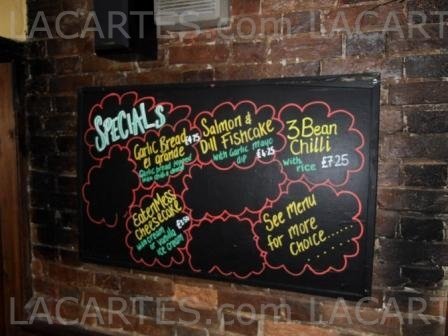 LACARTES.com LACARTES.com LACARTES
SPECIALS
Garlic Bread
el grande
£4.25
Salmon &
Dill Fishcake
with Garlic mayo
dip £6.25
3 Bean
Chilli
with
rice £7.25
Eaten Mess
Cheesecake
£3.50
with cream
or vanilla
ice cream
See Menu
for More
Choice
LACARTES.com LACARTES.com LACARTES